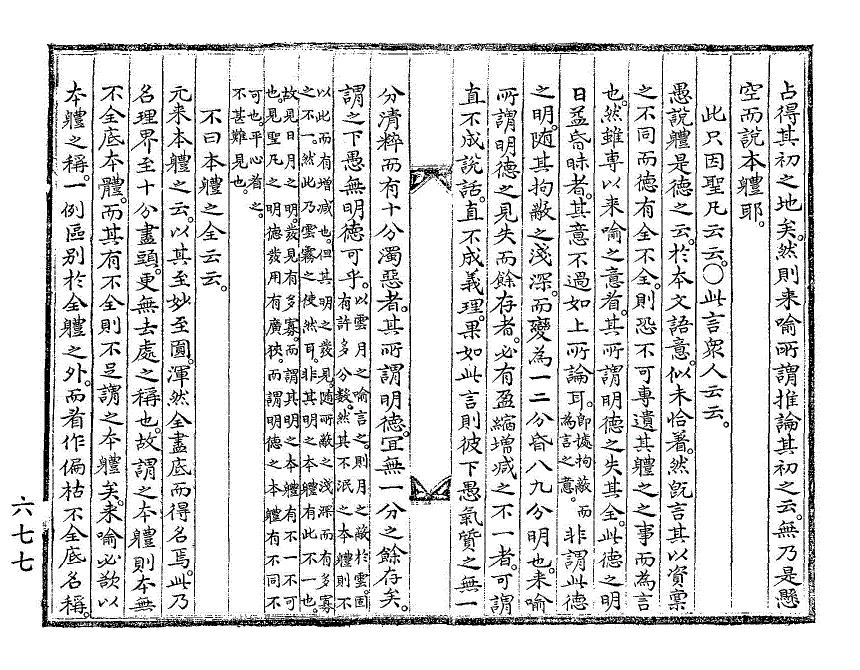 占得其初之地矣。然則來喩所謂推論其初之云。無乃是懸
空而說本軆耶。
此只因聖凡云云。○此言衆人云云。
愚說軆是德之云。於本文語意。似未恰著。然旣言其以資稟
之不同而德有全不全。則恐不可專遺其軆之之事而為言
也。然雖專以來喩之意者。其所謂明德之失其全。此德之明
日益昏昧者。其意不過如上所論耳。卽據拘蔽而為言之意。非謂此德
之明。隨其拘蔽之淺深。而變為一二分昏八九分明也。來喩
所謂明德之見失而餘存者。必有盈縮增减之不一者。可謂
直不成說話。直不成義理。果如此言則彼下愚氣質之無一
分清粹而有十分濁惡者。其所謂明德。宜無一分之餘存矣。
謂之下愚無明德可乎。以雲月之喩言之。則月之蔽於雲。固有許多分數。然其不泯之本軆則不
以此而有增减也。但其明之發見。隨所蔽之淺深而有多寡之不一。然此乃雲霧之使然耳。非其明之本軆有此不一也。
故見日月之明。發見有多寡。而謂其明之本軆有不一不可也。見聖凡之明德發用有廣狹。而謂明德之本軆有不同不
可也。平心者之。不甚難見也。
不曰本軆之全云云。
元來本軆之云。以其至妙至圓。渾然全盡底而得名焉。此乃
名理界至十分盡頭。更無去處之稱也。故謂之本軆則本無
不全底本體。而其有不全則不足謂之本軆矣。來喩必欲以
本軆之稱。一例區別於全軆之外。而看作偏枯不全底名稱。
六七七